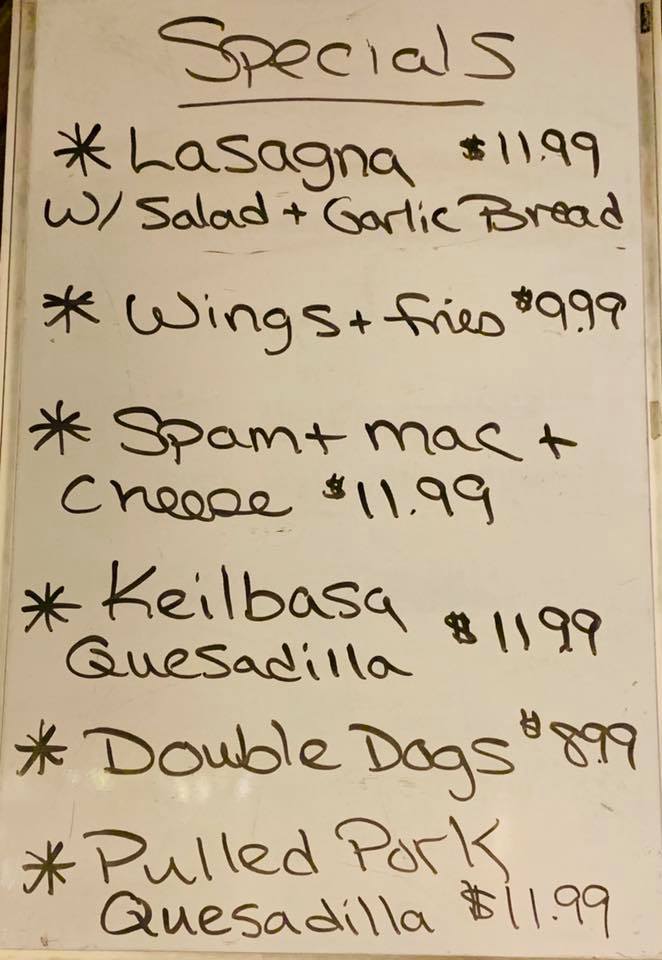 Specials
* Lasagna $11.99
w/ Salad + Garlic Bread
* Wings + fries $9.99
* Spam + mac +
Cheese $11.99
* Keilbasa
Quesadilla $11.99
* Double Dogs $8.99
* Pulled Pork
Quesadilla $11.99